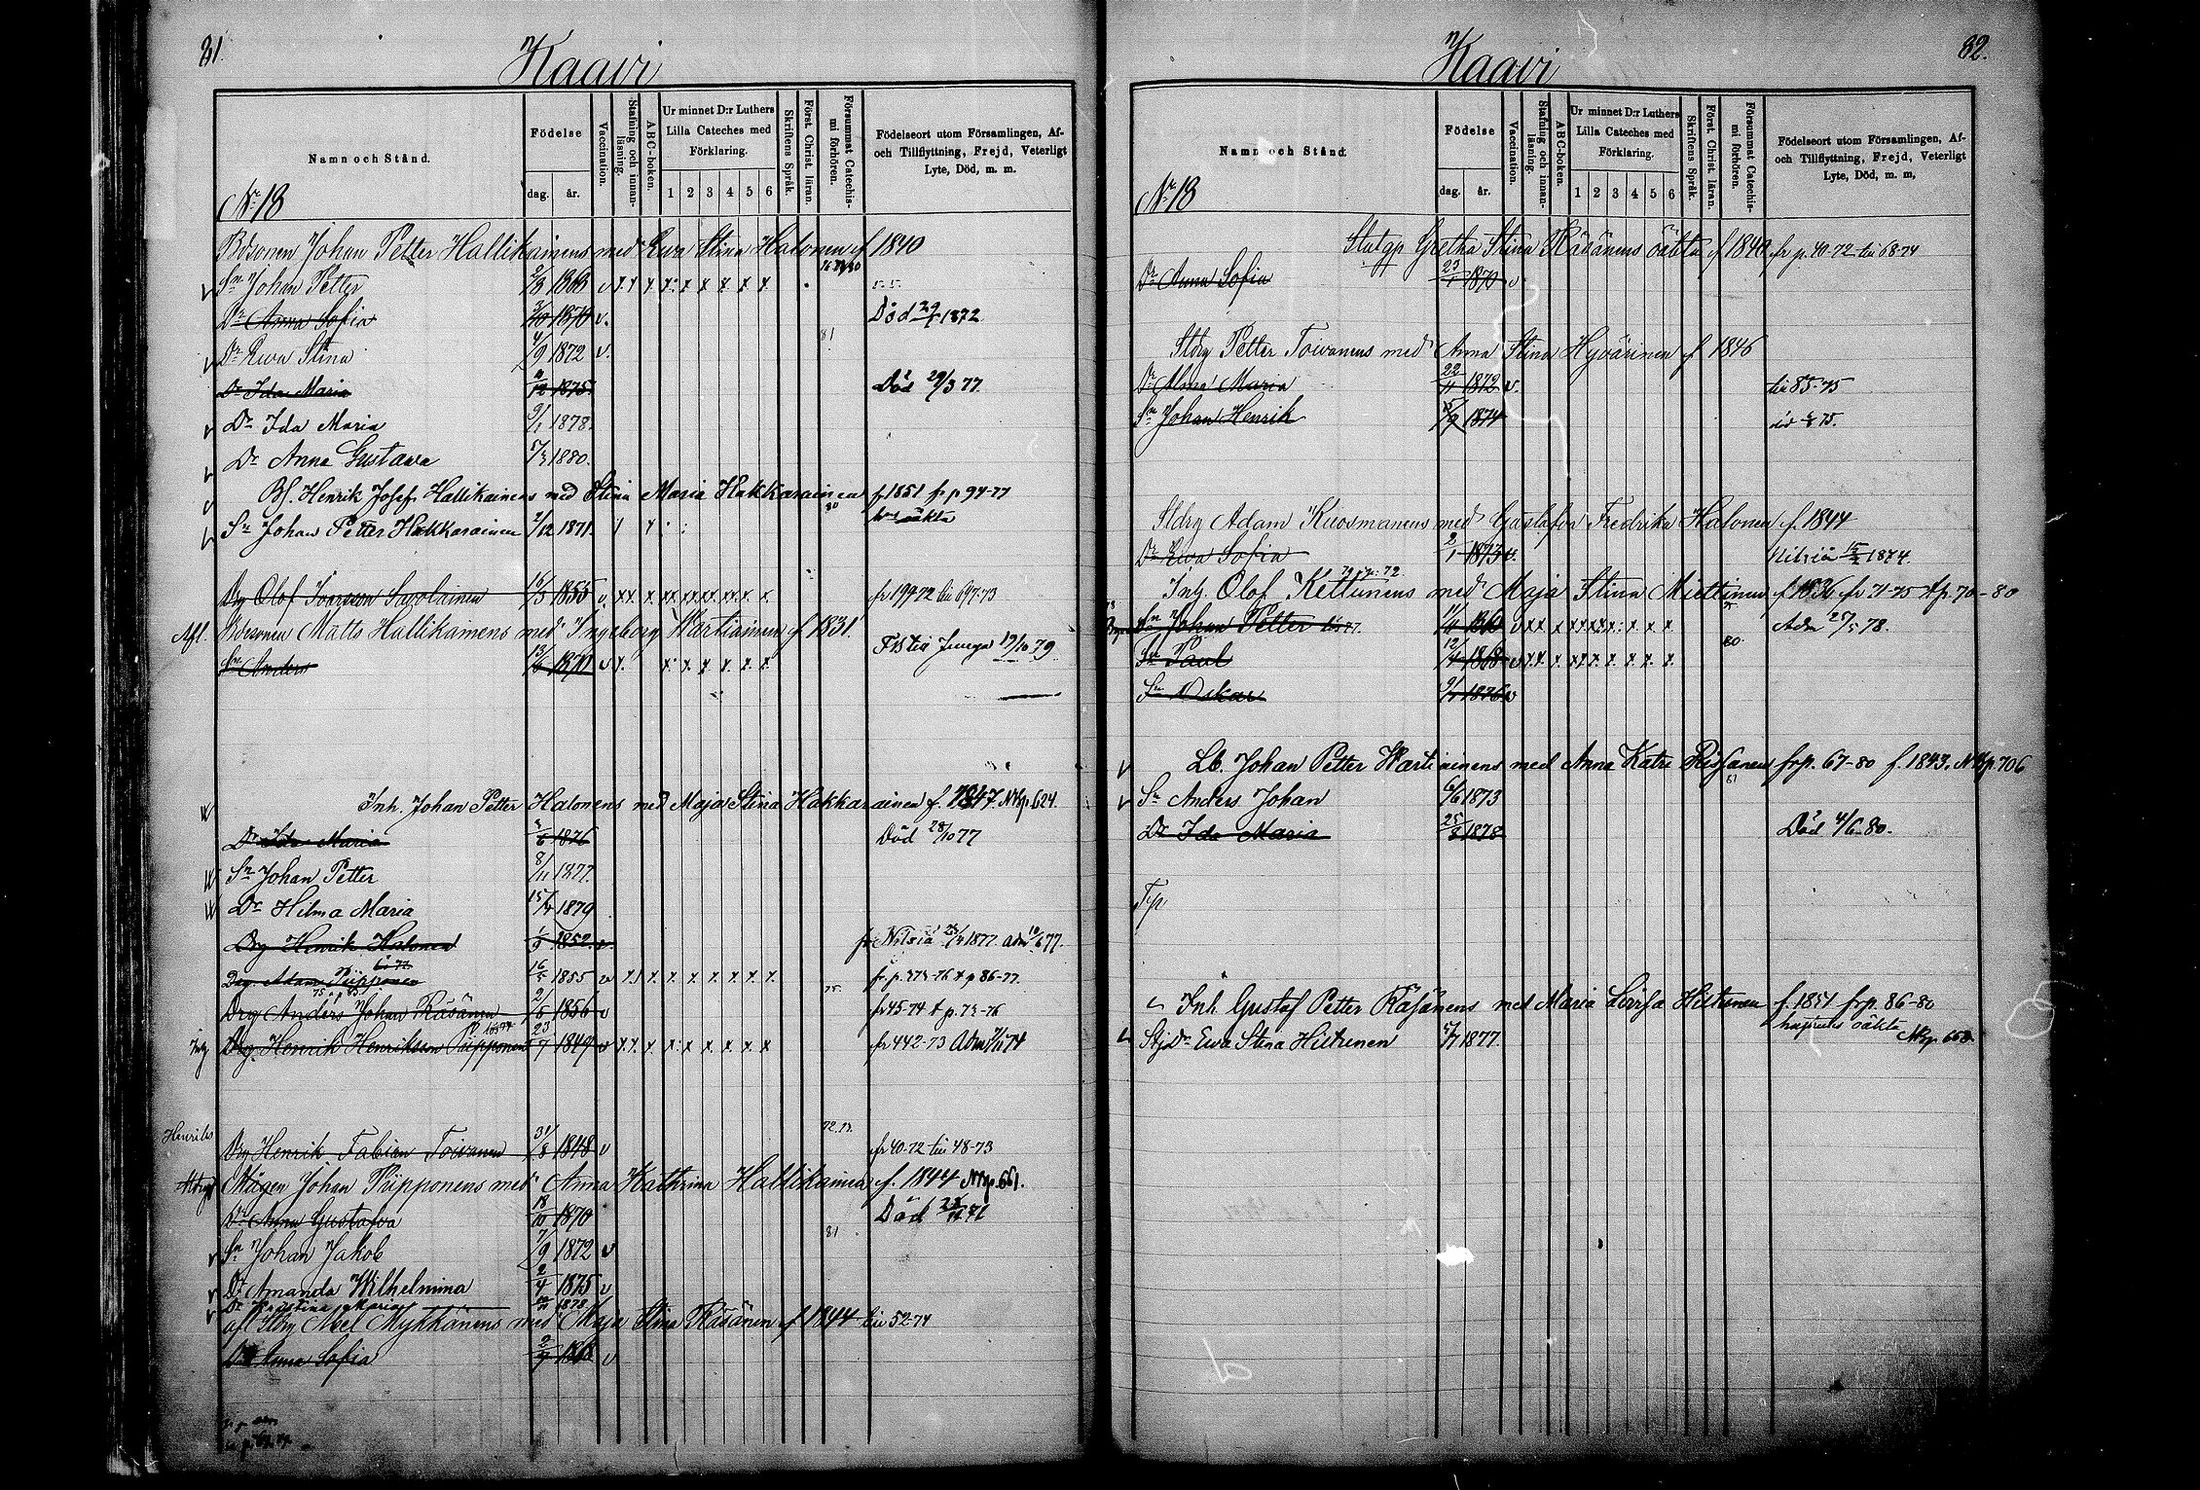 81.
Kaavi
Namn och Stånd.
Födelse
dag. år.
Vaccination.
Stafning och innanläsning.
A B C-boken.
Ur minnet D:r Luthers Lilla Cateches med Förklaring.
1 2 3 4 5 6
Skriftens Språk.
Först. Christ. läran.
Försummat Catechismi förhören.
Födelseort utom Församlingen, Af- och Tillflyttning, Frejd, Veterligt Lyte, Död, m. m.
Nr 18
Bdsonen Johan Petter Hallikainens med Ewa Stina Halonen f 1840
Sn Johan Petter 1868 v
Dr Anna Sofia 1870 v. Död 1872
Dr Ewa Stina 4/9 1872 v. 81
Dr Ida Maria 1875 Död 29/3 77.
Dr Ida Maria 9/1 1878.
Dr Anna Gustava 1880.
Bs. Henrik Josef Hallikainens med Stina Maria Hakkarainen f 1851 fr p 94-77
Sn Johan Petter Hakkarainen 1/12 1871. 80 oäkta
Drg Olof Ivarsson Savolainen 16/5 1855 v. x x x x x x x x x x fr 199-72 till 697-73
Afl. Bdsonen Matts Hallikainens med Ingeborg Wartiainen f 1831.
Sn Anders 13/6 1870 v x. x x x x x x 19/10 79
Inh. Johan Petter Halonens med Maja Stina Hakkarainen f. 1847. Nkp. 624.
Dr Ida Maria 1876 Död 28/10 77
Sn Johan Petter 8/11 1877.
Dr Hilma Maria 15/4 1879
Drg Henrik Halonen 1852. fr Nilsiä 1877. adm 10/6 77.
Drg. Adam Piipponen 16/5 1855 v x x x x x x x x x fr. p. 373-76 x p 86-77.
Drg Anders Johan Räsänen 2/5 1856 v 75. fr 45-74 x p. 73-76
Inh Drg. Henrik Henriksson Piipponen 23/7 1849 v x x x x x x x x x fr 442-73
Henriks
Drg Henrik Fabian Toivanen 31/8 1848 v 72. 73. fr 40-72 till 48-73
Mågen Johan Piipponens med Anna Kathrina Hallikainen f. 1844 Nkp. 661.
Dr Anna Gustafva 18/10 1870 Död
Sn Johan Jakob 7/9 1872 v 81
Dr Amanda Wilhelmina 2/4 1875 v
Dr Kristina Maria 1878
afl Sldrg Abel Mykkänens med Maja Stina Räsänen f 1844 till 52-74
Dr Anna Sofia 1868 v
82.
Kaavi
Namn och Stånd.
Födelse
dag. år.
Vaccination.
Stafning och innanläsning.
A B C-boken.
Ur minnet D:r Luthers Lilla Cateches med Förklaring.
1 2 3 4 5 6
Skriftens Språk.
Först. Christ. läran.
Försummat Catechismi förhören.
Födelseort utom Församlingen, Af- och Tillflyttning, Frejd, Veterligt Lyte, Död, m. m.
Nr 18
Gretha Stina Räsänens oäkta f 1840 fr p. 40-72 till 68-74
Dr Anna Sofia 23/1 1870 v
Sldrg Petter Toivanens med Anna Stina Hyvärinen f 1846
Dr Alma Maria 22/11 1872 v. till 85-75
Sn Johan Henrik 1874 död 75.
Sldrg Adam Kuosmanens med Gustafva Fredrika Halonen f. 1844
Dr Ewa Sofia 2/1 1873 v. Nilsiä 1874.
Inh. Olof Kettunens med Maja Stina Miettinen f 1836 fr 71-75 x p. 70-80
Sn Johan Petter v x x x x x x x x x Adm 78.
Sn Paul 12/4 1868 v x x x x x x x x x 80
Sn Oskar 1876 v
Lb. Johan Petter Wartiainens med Anna Katri Räsänen fr p. 67-80 f. 1843. Nkp. 706
Sn Anders Johan 6/6 1873 81
Dr Ida Maria 1878 Död 4/6 80.
Inh Gustaf Petter Räsänens med Maria Lovisa Hiltunen f. 1851 fr p. 86-80
Stjdr Ewa Stina Hiltunen 1877. hustrus oäkta Nkp. 668